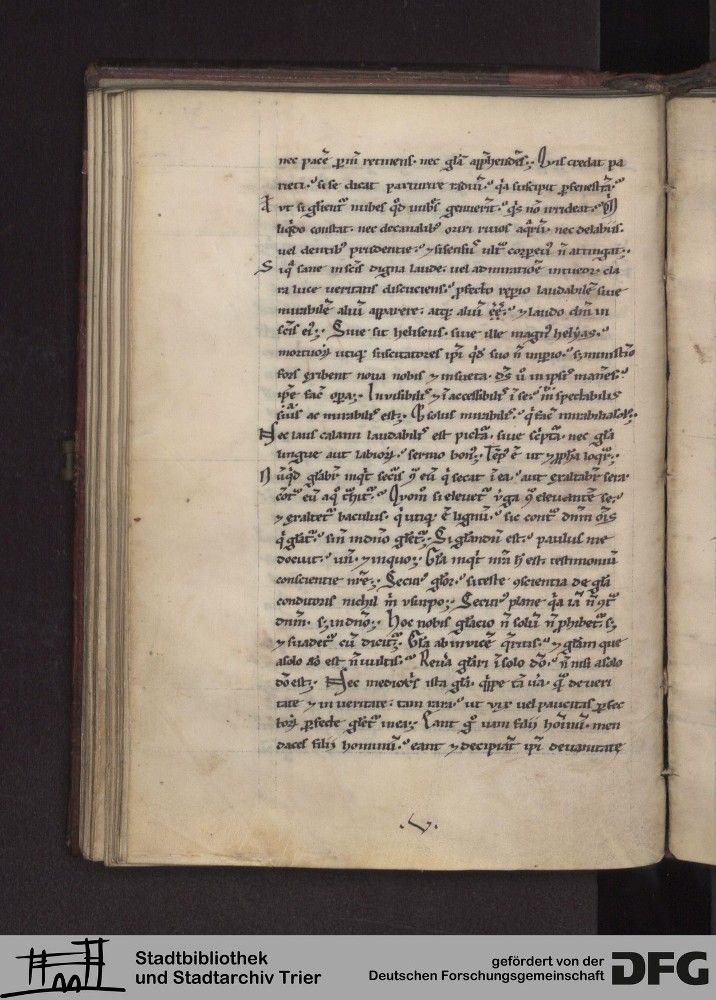 nec pacē p̄m̄ retinens. nec glā app̄hendēs. Quis credat pa
rieti. si se dicat parturire radiū. q̄a suscipit p̄ fenestrā.
Aut si glient̄ nubes q̄d imb's genuerīt. q's nō irrideat.
liq̄do constat. nec decanalib' oriri rivos aq̄rū. nec delabiis.
vel dentib' prudentie. ⁊ si sensus ult̄ corporeus n̄ attingat.
Siq̄ sane in scīs digna laude. vel admiratiōe intueor. cla
ra luce veritatis discutiens. p̄fecto rep̄io laudabilē sive
mirabilē aliū apparere. atq; aliū eē. ⁊ laudo dm̄ in
scīs ei'. Sive sit heliseus. sive ille magn' helyas.
mortuoꝝ utiq; suscitatores ip̄i q'd suo n̄ imp̄io. s; ministīo
foris exibent nova nobis ⁊ insueta. d's v̄ in ipsis manēs.
ip̄e fac̄ opa. Invisibilis ⁊ īaccessibilis ī se.
suis ac mirabilis est. Q solus mirabilis. q' fac̄ mirabilia sol'.
Nec laus calami laudabilis est pictā. sive sc'ptā. nec glā
lingue aut labioꝝ. sermo bon'. Tēp' ē ut ⁊ p̄pha loq̄r.
Nūq'd glabr̄ inq't secūs 9 eū q' secat ī ea. aut exaltabr̄ serra
cōt̄ eū a q° t̄hit̄. Quom̄ si elevet̄ v'ga 9 elevantē se.
⁊ exaltet̄ baculus. q' utiq; ē lignū. sic cont̄ dnm̄ om̄s
q' glāt̄. si n̄ in dnō glet̄. Si glandū est. paulus me
docuit. ⁊ in quo. Glā inq't nrā h̄ est. testimoniū
conscientie nrē. Secur' glor. si teste 9scientia de glā
conditoris nichil m̄ usurpo. Secur' plane q̄a iā n̄ 9t̄
dnm̄. s; in dnō. Hoc nobis glacio n̄ solū n̄ phibet̄. s;
⁊ suadet̄ cū dicit̄. Glā ab invicē q̄ritis. ⁊ glām que
a solo dō est n̄ vultis. Revā glari ī solo dō. n̄ nisi a solo
dō est. Nec mediocris ista glā. q'ppe tā v̄a. q̄ de veri
tate ⁊ in veritate. tam rara. ut vix vel paucitas p̄fec
toꝝ p̄fecte glet̄ in ea. Eant g° vani filii hoīnū. men
daces filii hominū. eant ⁊ decipiāt ip̄i de vanitate
.V.
Stadtbibliothek
und Stadtarchiv Trier
gefördert von der
Deutschen Forschungsgemeinschaft
DFG